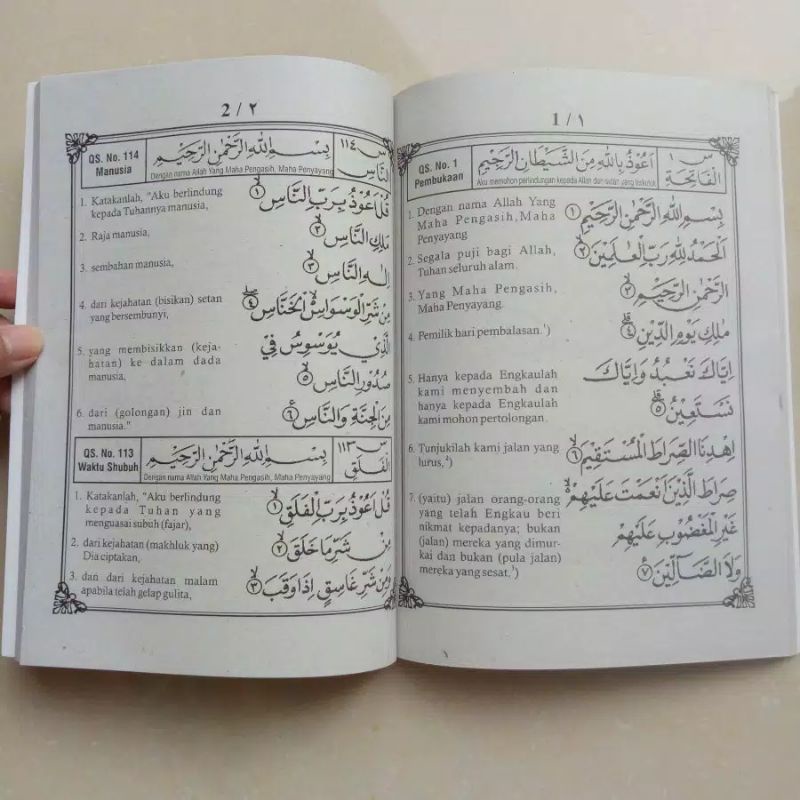 1 / ١
QS. No. 1
Pembukaan
اَعُوْذُ بِاللّٰهِ مِنَ الشَّيْطَانِ الرَّجِيْمِ
Aku memohon perlindungan kepada Allah dari setan yang terkutuk
س ١
الْفَاتِحَة
1. Dengan nama Allah Yang
Maha Pengasih, Maha
Penyayang
بِسْمِ اللّٰهِ الرَّحْمٰنِ الرَّحِيْمِ ١
2. Segala puji bagi Allah,
Tuhan seluruh alam.
اَلْحَمْدُ لِلّٰهِ رَبِّ الْعٰلَمِيْنَ ٢
3. Yang Maha Pengasih,
Maha Penyayang.
الرَّحْمٰنِ الرَّحِيْمِ ٣
4. Pemilik hari pembalasan.¹)
مٰلِكِ يَوْمِ الدِّيْنِ ٤
5. Hanya kepada Engkaulah
kami menyembah dan
hanya kepada Engkaulah
kami mohon pertolongan.
اِيَّاكَ نَعْبُدُ وَاِيَّاكَ
نَسْتَعِيْنُ ٥
6. Tunjukilah kami jalan yang
lurus,²)
اِهْدِنَا الصِّرَاطَ الْمُسْتَقِيْمَ ٦
7. (yaitu) jalan orang-orang
yang telah Engkau beri
nikmat kepadanya; bukan
(jalan) mereka yang dimur-
kai dan bukan (pula jalan)
mereka yang sesat.³)
صِرَاطَ الَّذِيْنَ اَنْعَمْتَ عَلَيْهِمْ
غَيْرِ الْمَغْضُوْبِ عَلَيْهِمْ
وَلَا الضَّاۤلِّيْنَ ٧
2 / ٢
QS. No. 114
Manusia
بِسْمِ اللّٰهِ الرَّحْمٰنِ الرَّحِيْمِ
Dengan nama Allah Yang Maha Pengasih, Maha Penyayang
س ١١٤
النَّاس
1. Katakanlah, "Aku berlindung
kepada Tuhannya manusia,
قُلْ اَعُوْذُ بِرَبِّ النَّاسِ ١
2. Raja manusia,
مَلِكِ النَّاسِ ٢
3. sembahan manusia,
اِلٰهِ النَّاسِ ٣
4. dari kejahatan (bisikan) setan
yang bersembunyi,
مِنْ شَرِّ الْوَسْوَاسِ الْخَنَّاسِ ٤
5. yang membisikkan (keja-
hatan) ke dalam dada
manusia,
الَّذِيْ يُوَسْوِسُ فِيْ
صُدُوْرِ النَّاسِ ٥
6. dari (golongan) jin dan
manusia."
مِنَ الْجِنَّةِ وَالنَّاسِ ٦
QS. No. 113
Waktu Shubuh
بِسْمِ اللّٰهِ الرَّحْمٰنِ الرَّحِيْمِ
Dengan nama Allah Yang Maha Pengasih, Maha Penyayang
س ١١٣
الْفَلَق
1. Katakanlah, "Aku berlindung
kepada Tuhan yang
menguasai subuh (fajar),
قُلْ اَعُوْذُ بِرَبِّ الْفَلَقِ ١
2. dari kejahatan (makhluk yang)
Dia ciptakan,
مِنْ شَرِّ مَا خَلَقَ ٢
3. dan dari kejahatan malam
apabila telah gelap gulita,
وَمِنْ شَرِّ غَاسِقٍ اِذَا وَقَبَ ٣